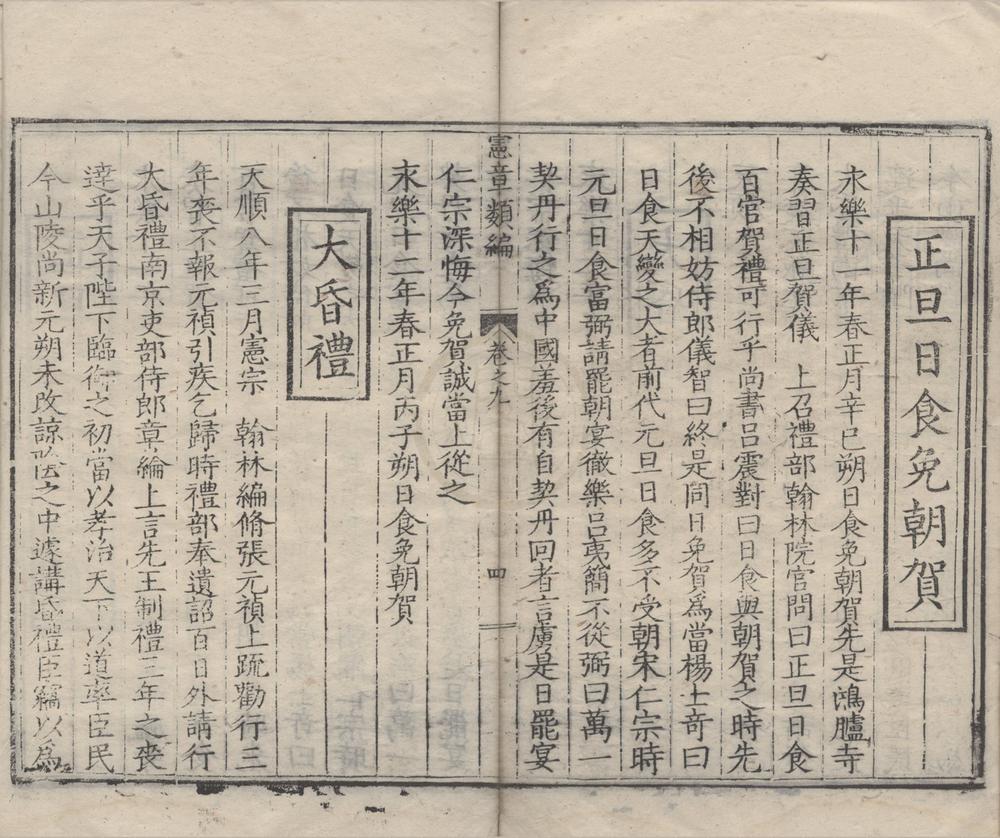 正旦日食免朝賀
永樂十一年春正月辛巳朔日食免朝賀先是鴻臚寺
奏習正旦賀儀　上召禮部翰林院官問曰正旦日食
百官賀禮可行乎尚書呂震對曰日食與朝賀之時先
後不相妨侍郎儀智曰終是同日免賀爲當楊士奇曰
日食天變之大者前代元旦日食多不受朝宋仁宗時
元旦日食富弼請罷朝宴徹樂呂夷簡不從弼曰萬一
契丹行之爲中國羞後有自契丹回者言虜是日罷宴
仁宗深悔今免賀誠當上從之
永樂十二年春正月丙子朔日食免朝賀
憲章類編　卷之九　四
大昏禮
天順八年三月憲宗　翰林編脩張元禎上疏勸行三
年喪不報元禎引疾乞歸時禮部奉遺詔百日外請行
大昏禮南京吏部侍郎章綸上言先王制禮三年之喪
達乎天子陛下臨御之初當以孝治天下以道率臣民
今山陵尚新元朔未改諒陰之中遽講昏禮臣竊以爲